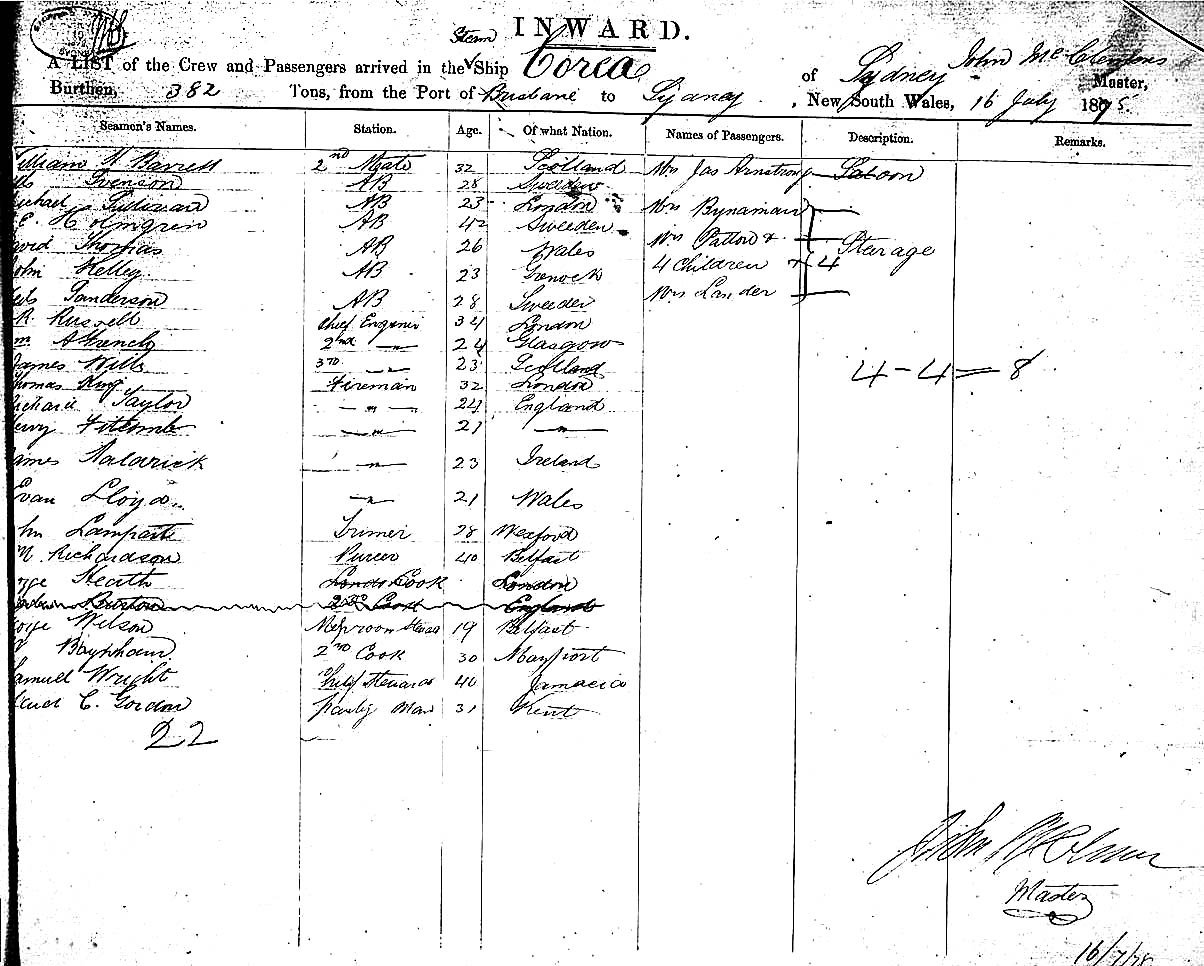 INWARD.
Steam
A LIST of the Crew and Passengers arrived in the Ship Corea of Sydney John Mc Master,
Burthen, 382 Tons, from the Port of Brisbane to Sydney, New South Wales, 16 July 187
Seamen's Names. Station. Age. Of what Nation. Names of Passengers. Description. Remarks.
illiam Barrett 2nd Mate 32 Scotland Mrs Jas Armstrong Saloon
Svenson AB 28 Sweeden
ichael AB 23 London Mrs Bynaman
Holmgren AB 42 Sweeden
avid Thomas AB 26 Wales Mrs Patton & Sterage
ohn Kelley AB 23 Grenock 4 Children + 4
Sanderson AB 28 Sweeden Mrs Lander
R. Russell Chief Engenir 34 London
m. 2nd — " — 24 Glasgow
James Wills 3rd — " — 23 Scotland 4 - 4 = 8
Thomas King Fireman 32 London
ichard Taylor — " — 24 England
enry Fitcomb — " — 21 — " —
ames " 23 Ireland
Evan Lloyd — " — 21 Wales
hn Trimer 28 Wexford
Richardson Purcer 40 Belfast
rge Heath Cook London
Burton 2nd Cook England
orge Wilson Messroom 19 Belfast
2nd Cook 30 Mayport
amuel Wright Chief Steward 40 Jamacia
C. Gordon Man 31 Kent
22
John
Master
16/7/78